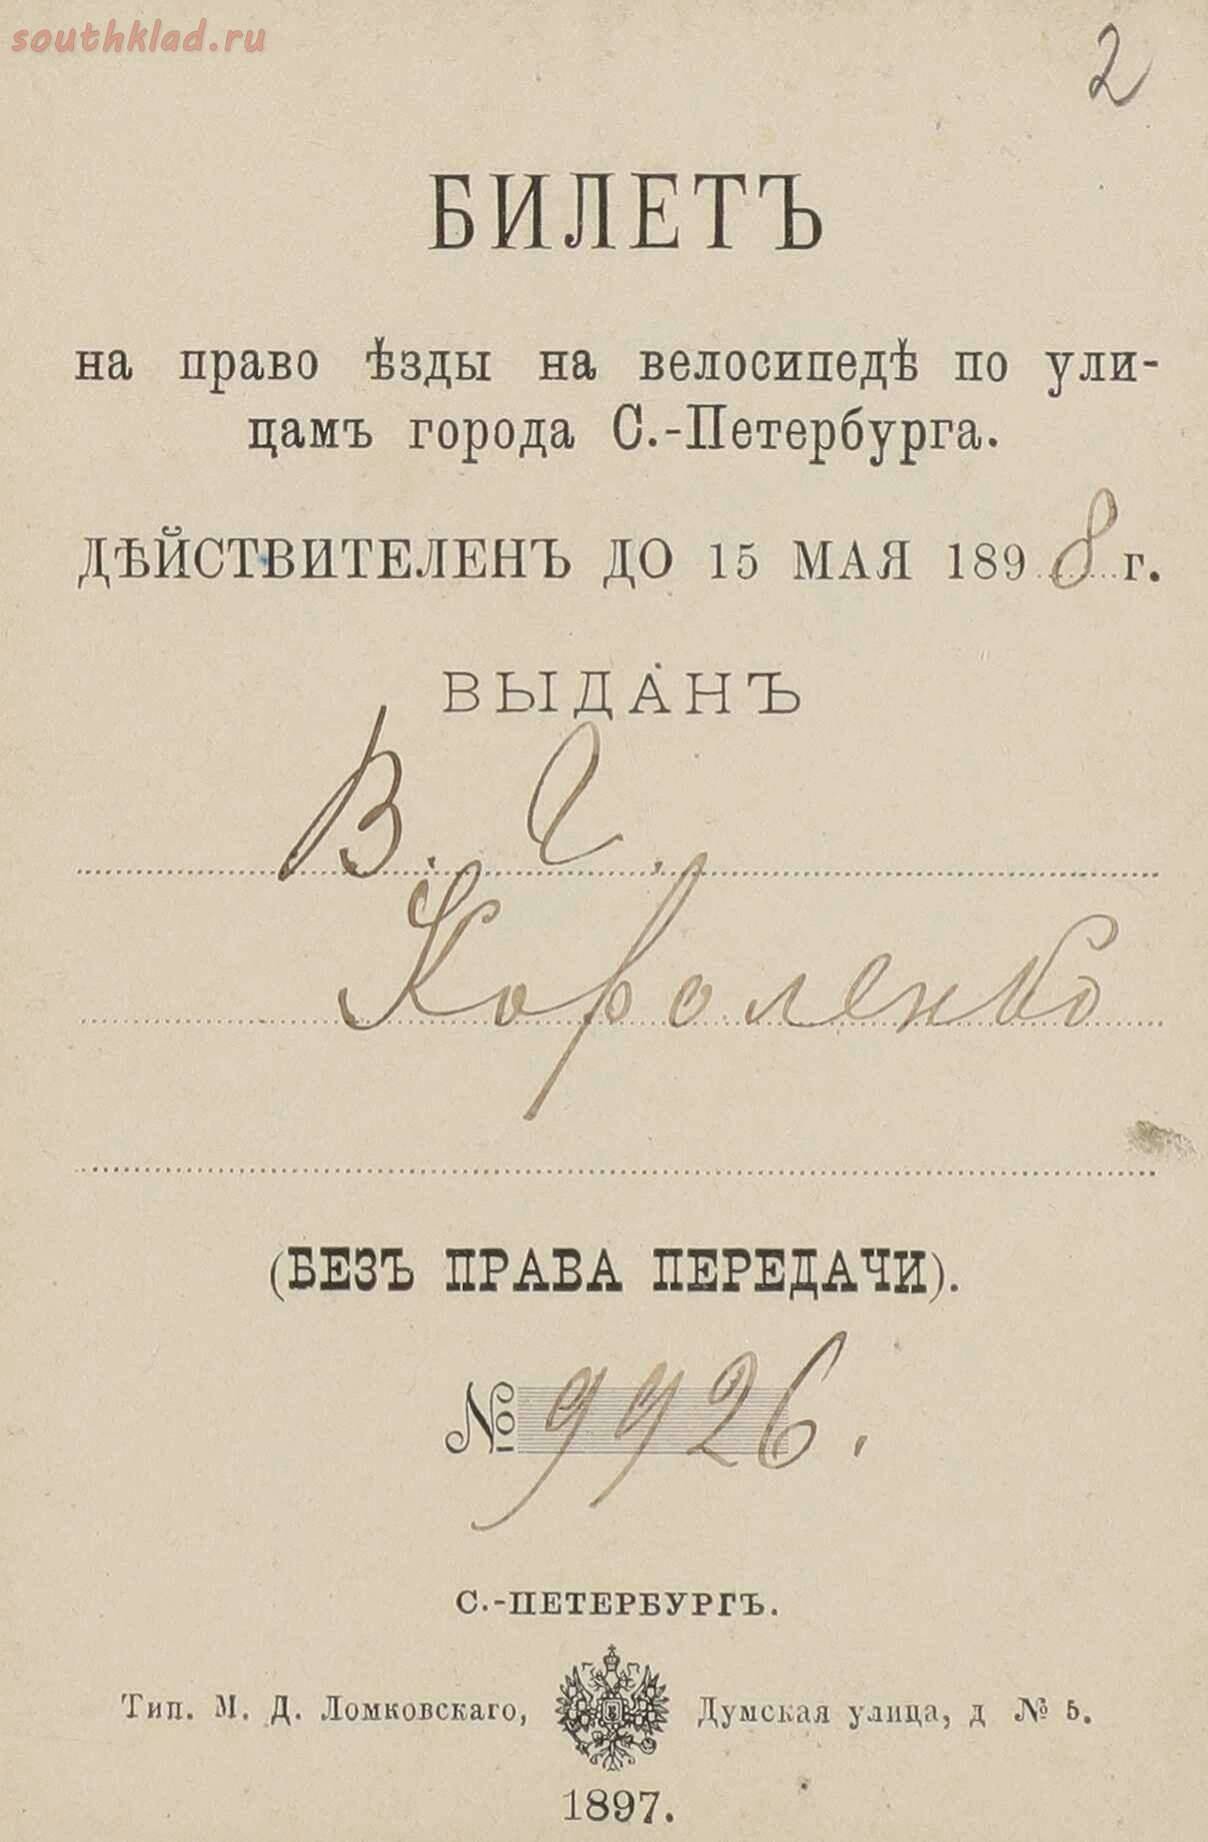 southklad.ru
2
БИЛЕТЪ
на право ѣзды на велосипедѣ по ули-
цамъ города С.-Петербурга.
ДѢЙСТВИТЕЛЕНЪ ДО 15 МАЯ 1898 г.
ВЫДАНЪ
В. Г.
Короленко
(БЕЗЪ ПРАВА ПЕРЕДАЧИ).
№ 9926.
С.-ПЕТЕРБУРГЪ.
Тип. М. Д. Ломковскаго, Думская улица, д № 5.
1897.